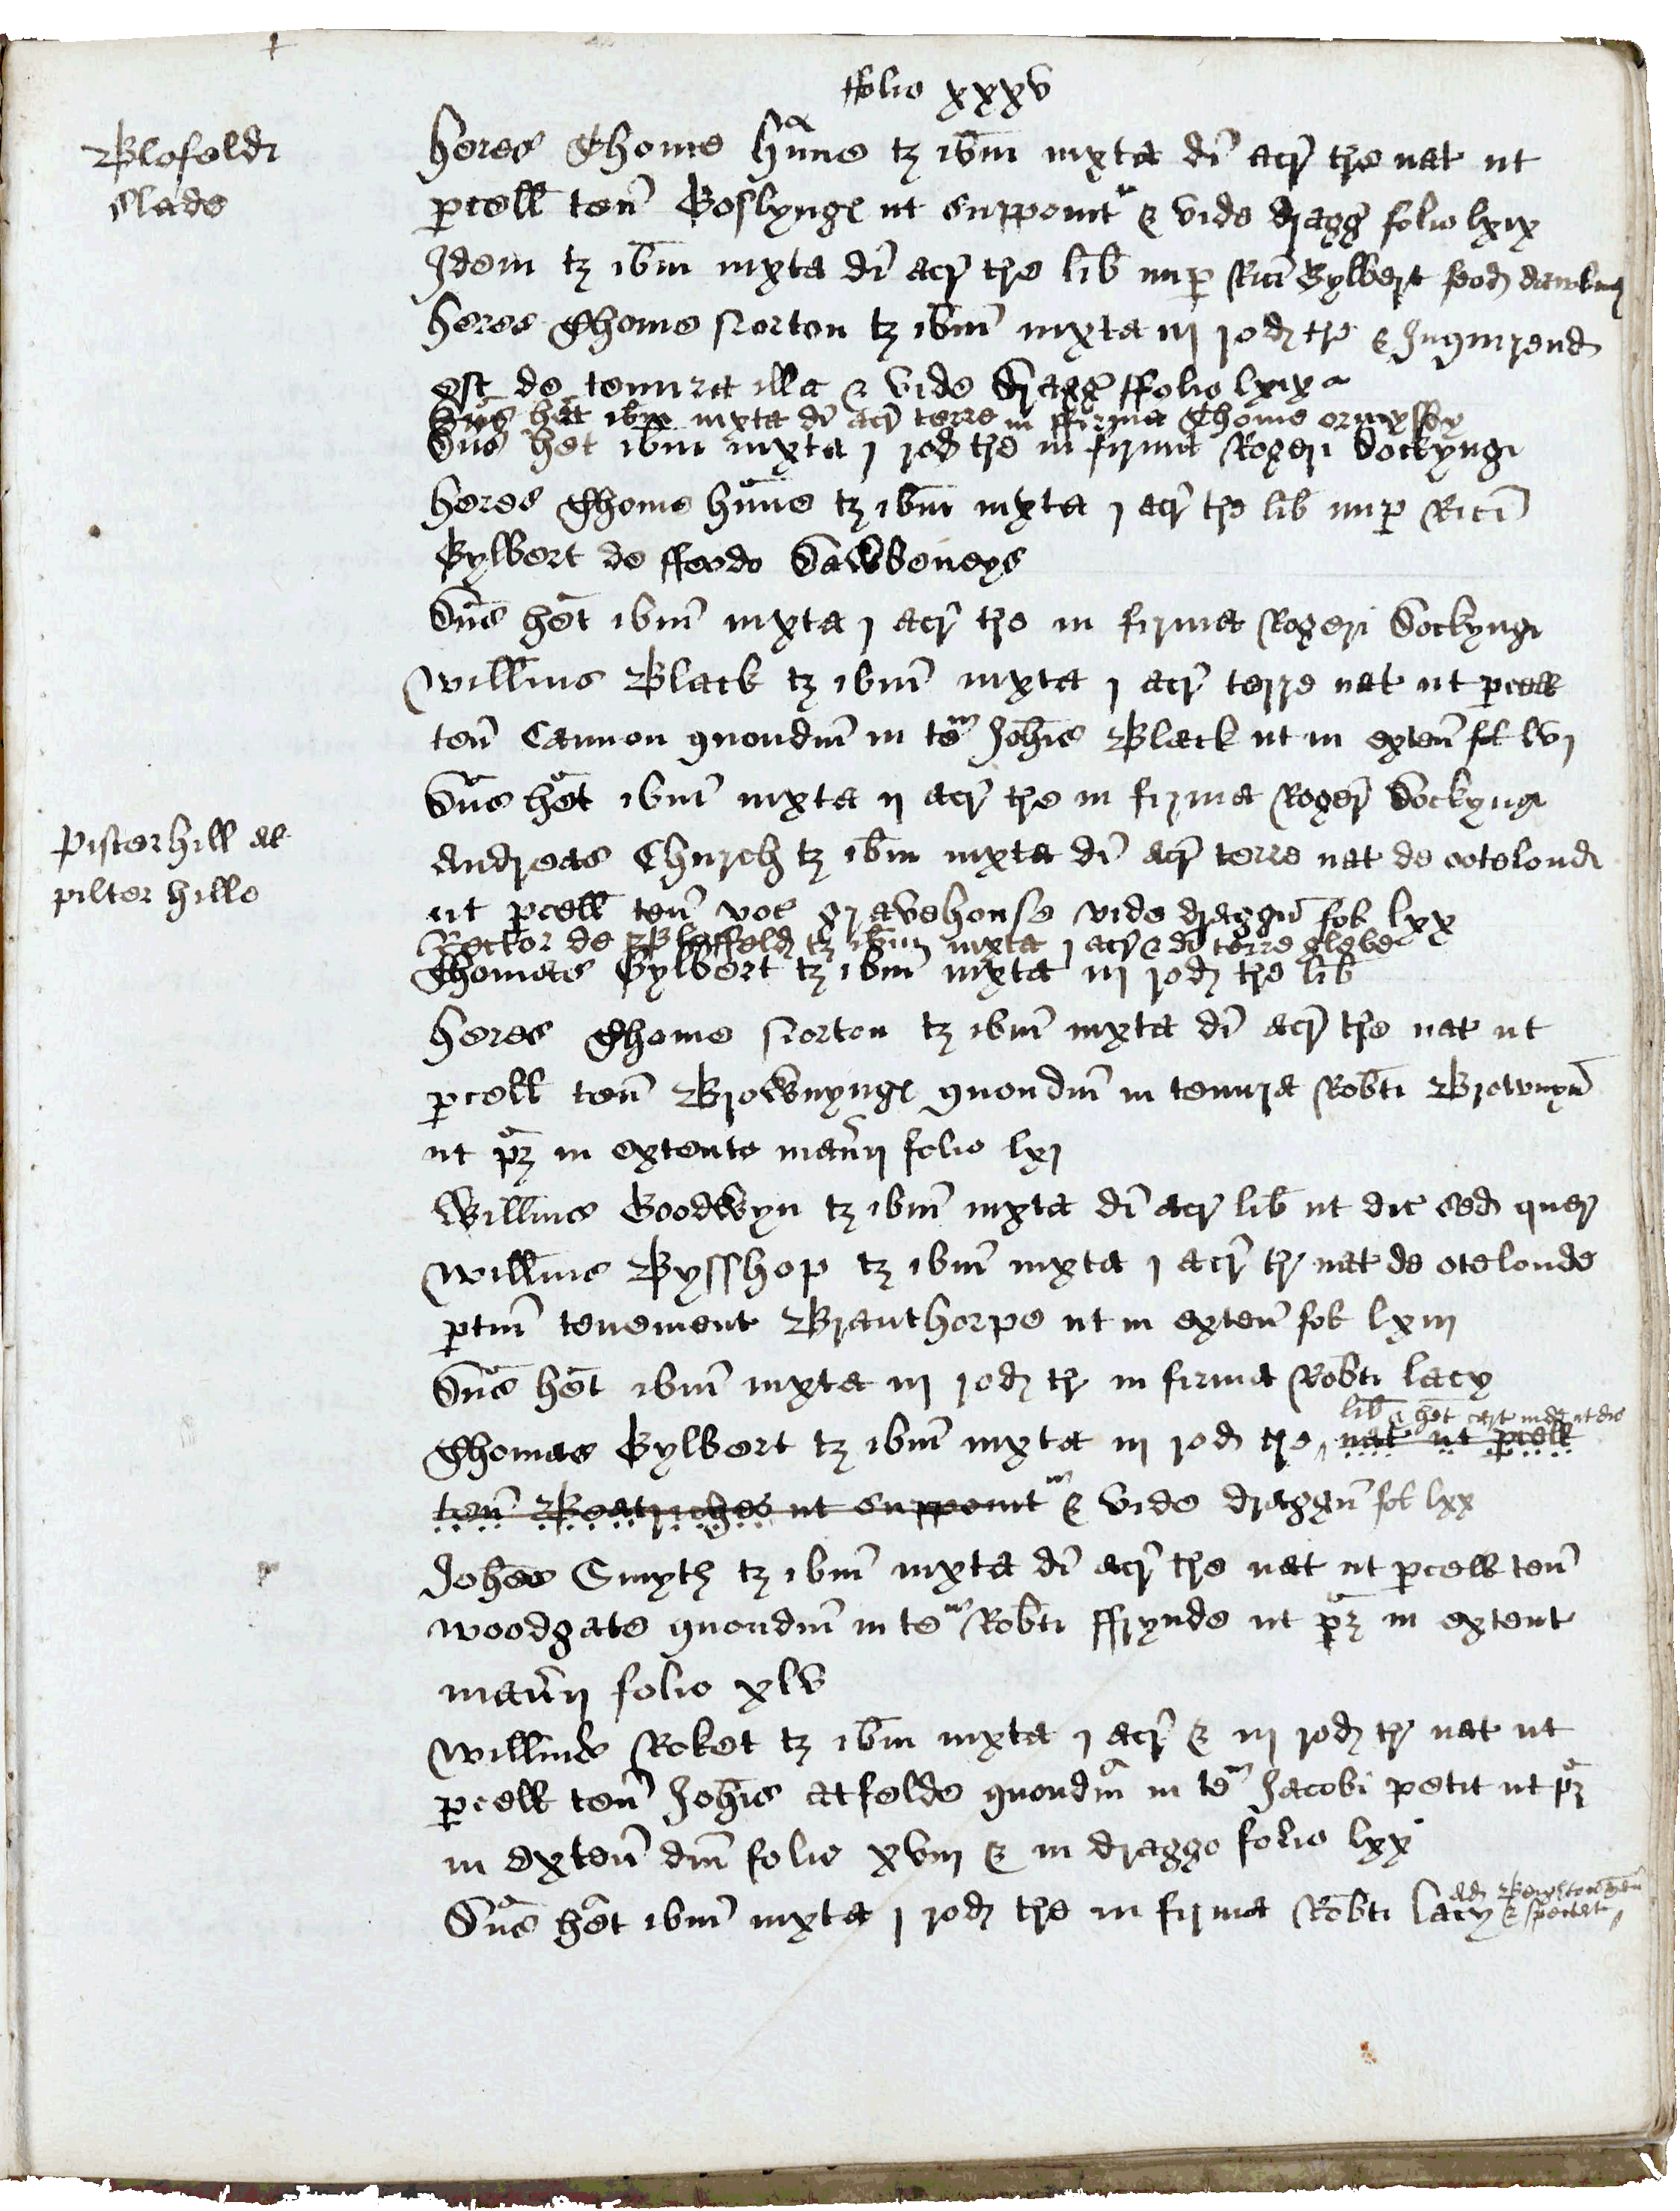 ffolio xxxv
Blofeld
slade
heres Thome hūne tȝ ibm iuxta di acr̄ tr̄e nat ut
pcell ten̄ Goslyng ut supponit̄ & vide dragḡ folio lxix
Idem tȝ ibm iuxta di acr̄ tr̄e lib nup Rici Gylbert feod
heres Thome Norton tȝ ibm iuxta iij rod tr̄e & Inquirend
est de tenura illa & vide dragḡ ffolio lxix
Dn̄s het ibm iuxta di acr̄ terre in ffirma Thome ormysby
Dn̄s het ibm iuxta j rod tr̄e in firma Rogeri Dockyng
heres Thome hūne tȝ ibm iuxta j acr̄ tr̄e lib nup Rici
Gylbert de ffeodo Dawbeneys
Dn̄s het ibm iuxta j acr̄ tr̄e in firma Rogeri Dockyng
Willms Black tȝ ibm iuxta j acr̄ terre nat ut pcell
ten̄ Cannon quondm in teᵐ Johis Black ut in exten̄ fol lvj
Dn̄s het ibm iuxta ij acr̄ tr̄e in firma Roger̄ Dockyng
Pister hill al
pilter hille
Andreas Church tȝ ibm iuxta di acr̄ terre nat de ootelond
ut pcell ten̄ voc gravehouse vide draggn̄ fol lxx
Rector de Bloffeld tȝ ibm iuxta j acr̄ & di terre glebe
Thomas Gylbert tȝ ibm iuxta iij rod tr̄e lib
heres Thome Norton tȝ ibm iuxta di acr̄ tr̄e nat ut
pcell ten̄ Brownyng quondm in tenura Robti Brownyn̄
ut pȝ in extente man̄ij folio lxj
Willms Goodwyn tȝ ibm iuxta di acr lib ut dic sed quer
Willms Bysshop tȝ ibm iuxta j acr̄ tr̄ nat de otelonde
ptin̄ tenement Branthorpe ut in exten̄ fol lxiij
Dn̄s het ibm iuxta iij rod tr̄ in firma Robti lacy
lib & het cart inde ut dic
Thomas Gylbert tȝ ibm iuxta iij rod tr̄e nat ut pcell
ten̄ Beatriches ut supponit̄ & vide draggn̄ fol lxx
Johes Smyth tȝ ibm iuxta di acr̄ tr̄e nat ut pcell ten̄
woodgate quondm in teᵐ Robti ffrynde ut pȝ in extent
man̄ij folio xlv
Willms Roket tȝ ibm iuxta j acr̄ & iij rod tr̄ nat ut
pcell ten̄ Johis atfelde quondm in teᵐ Jacobi petit ut pȝ
in exten̄ dm̄ folio xviij & in draggo folio lxx
Dn̄s het ibm iuxta j rod tr̄e in firma Robti lacy & spectat